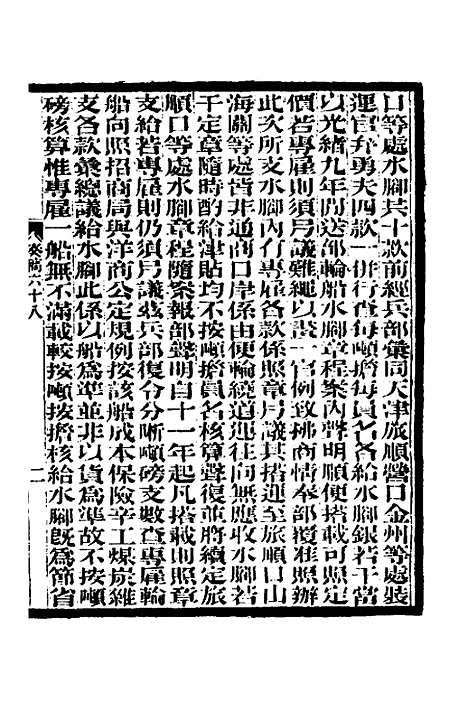 口等處水腳共十款前經兵部彙同天津旅順營口金州等處裝
運官弁勇夫四款一併行查每噸擔每員名各給水腳銀若干當
以光緒九年間送部輪船水腳章程案內聲明順便搭載可照定
價若專雇則須另議難繩以設一官例致拂商情奉部覆准照辦
此次所支水腳內有專雇各款係照章另議其搭運至旅順口山
海關等處皆非通商口岸係由便輪繞道迤往向無應收水腳若
干定章隨時酌給津貼均不按噸擔員名核算聲復並將續定旅
順口等處水腳章程隨案報部聲明自十一年起凡搭載則照章
支給若專雇則仍須另議茲兵部復令分晰噸磅支數查專雇輪
船向照招商局與洋商公定規例按該船成本保險辛工煤炭雜
支各款彙總議給水腳此係以船為準並非以貨為準故不按噸
磅核算惟專雇一船無不滿載較按噸按擔核給水腳既為節省
奏稿六十八
二